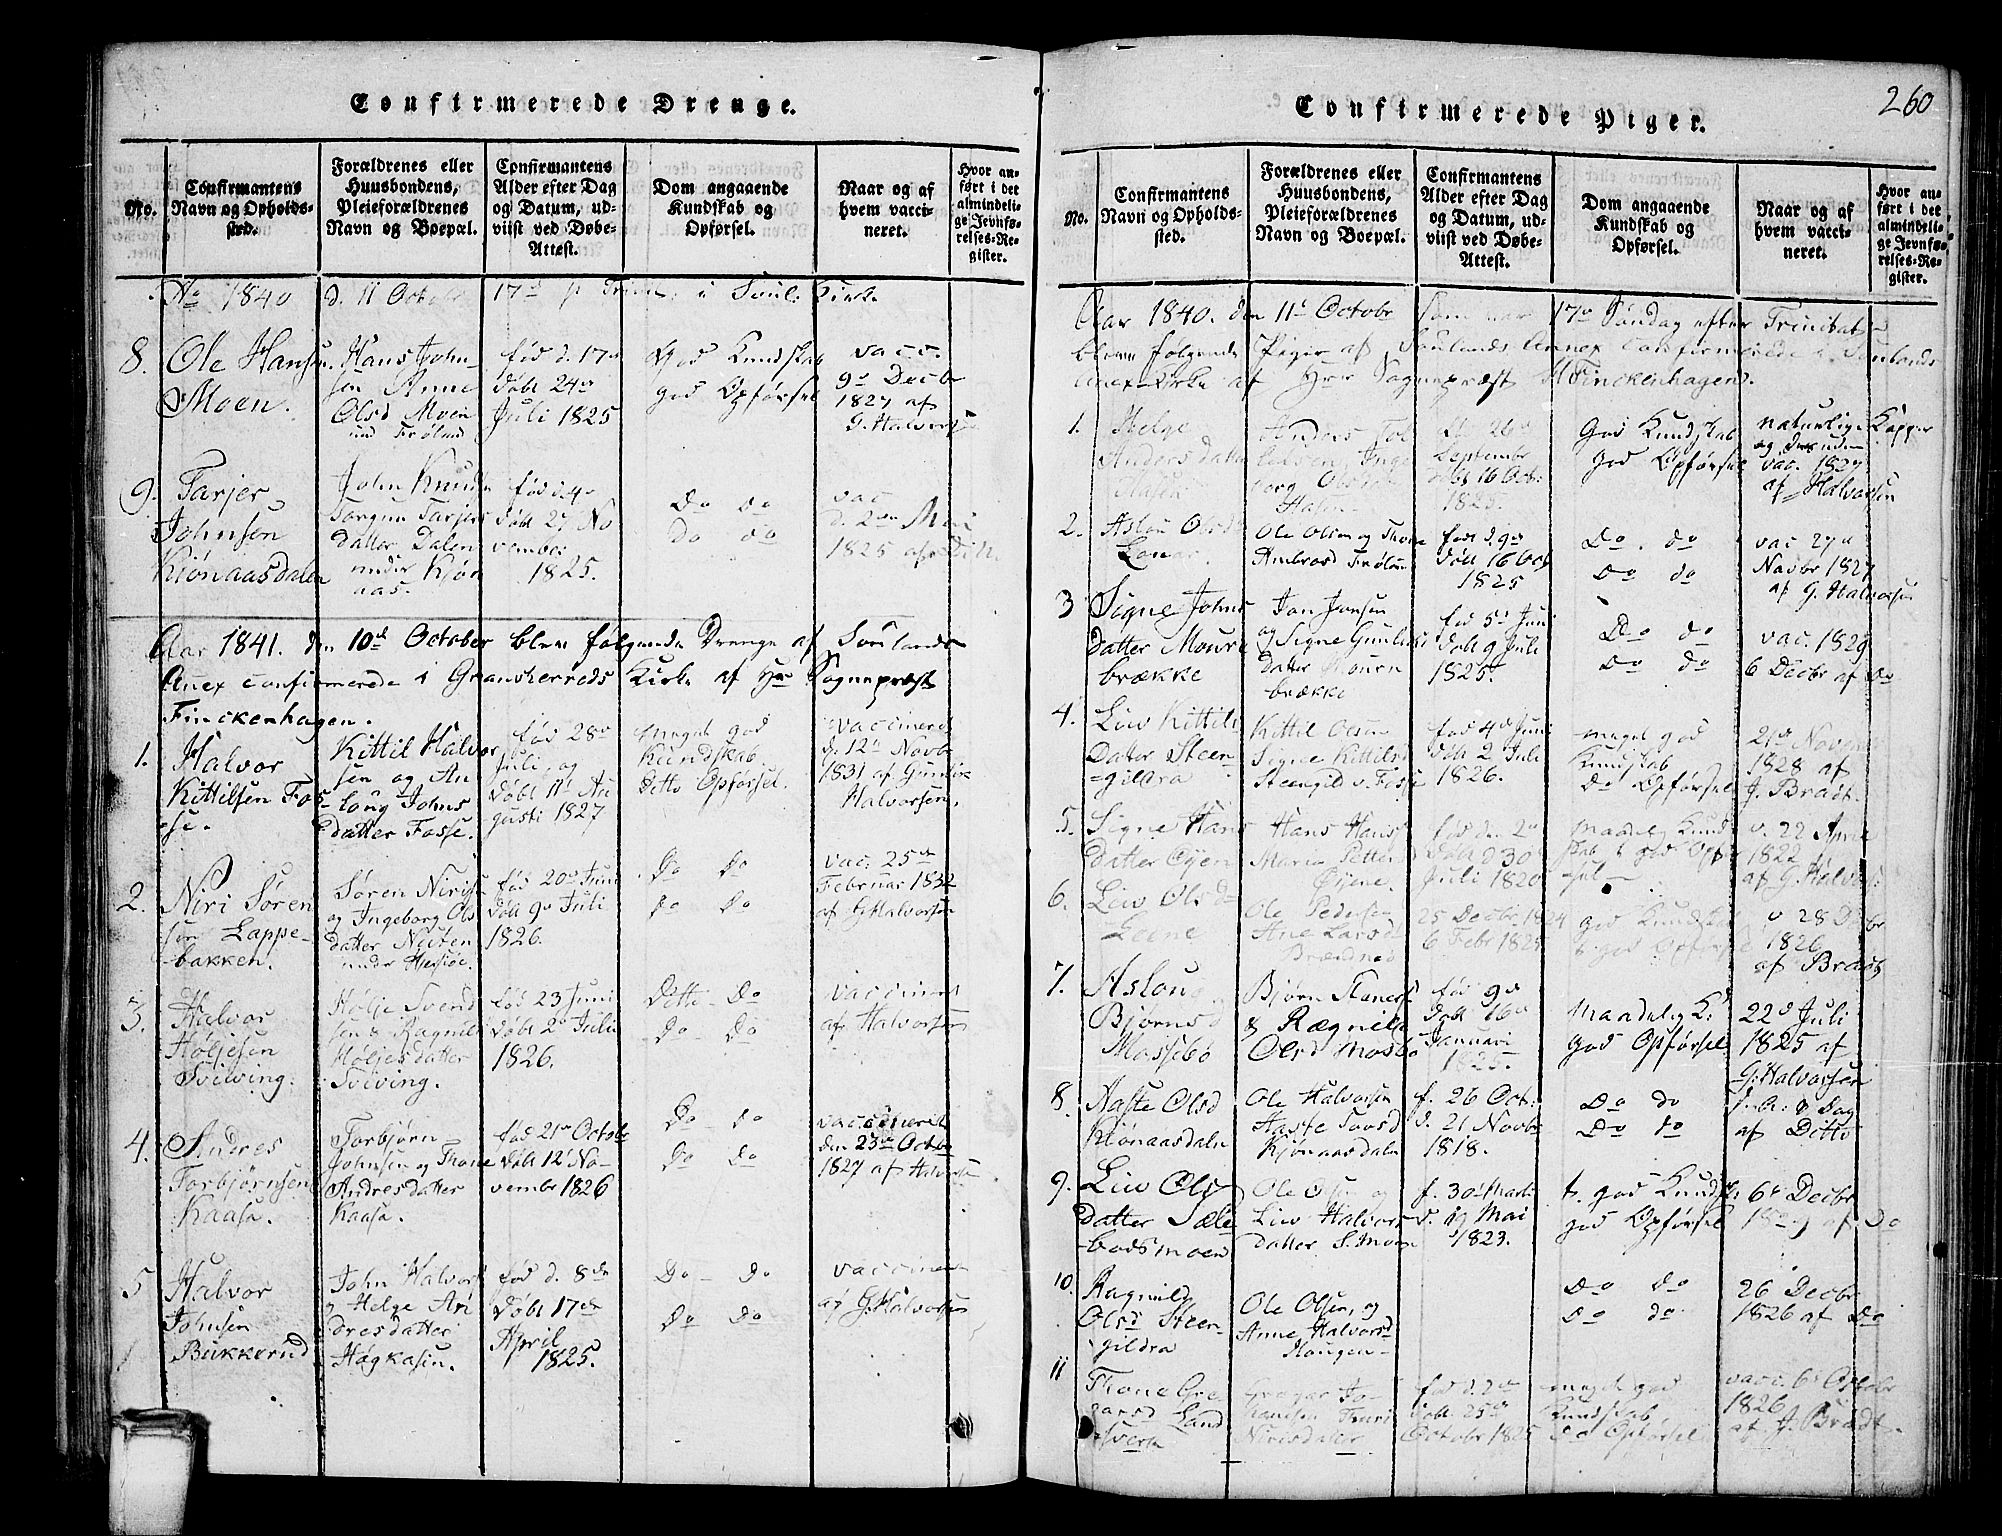 Confirmerede Drenge.
No.
Confirmantens
Navn og Opholds-
sted.
Forældrenes eller
Huusbondens,
Pleieforældrenes
Navn og Boepæl.
Confirmantens
Alder efter Dag
og Datum, ud-
viist ved Døbe-
Attest.
Dom angaaende
Kundskab og
Opførsel.
Naar og af
hvem vacci-
neret.
Hvor an-
ført i det
almindeli-
ge Jevnfø-
relses-Re-
gister.
Ao 1840 d. 11 October 17de p Trin. i Soul. Kirke
8.
Ole Hansen
Moen.
Hans John-
sen Anne
Olsd Moen
und Frøland
fød d. 17de
døbt 24de
Juli 1825
God Kundskab
god Opførsel
vacc.
9de Decb
1827 af
G. Halvorsen
9.
Tarjer
Johnsen
Kjønaasdalen
John Knuds
Torgun Tarjers
datter Dalen
under Kjøn
aas.
fød d. 4de
døbt 27 No
vember
1825.
Do do
Do do
vac
d. 2den Mai
1825 af
Aar 1841. den 10de October bleve følgende Drenge af Soulands
Anex confirmerede i Gransherreds Kirke af Hr Sognepræst
Finckenhagen.
1.
Halvor
Kittilsen Fos-
se.
Kittil Halvor
sen og An
loug Johns
datter Fosse.
fød 28de
Juli, og
døbt 11te Au
gusti 1827
meget god
Kundskab.
Ditto Opførsel.
vaccineret
d. 12te Novb
1831 af Gunlik
Halvorsen.
2.
Niri Søren
sen Lappe-
bakken.
Søren Niris
og Ingeborg Ols
datter Nuten
under Hessøe.
fød 20de Juni
døbt 9de Juli
1826.
Do Do
Do Do
vac. 25de
Februar 1832
af G. Halvorsen
3.
Halvor
Høljesen
Sviving.
Hølje Svend
sen & Ragnild
Høljesdatter
Sviving.
fød 23 Juni
døbt 2de Juli
1826.
Ditto Do
Do Do
vaccineret
af Halvorsen
4.
Andres
Torbjørnsen
Kaasa.
Torbjørn
Johnsen og Thone
Andresdatter
Kaasa.
fød 21de Octobr
døbt 12te No-
vembr 1826
Do do
Do Do
vaccineret
den 23de Octbr
1827 af Halvorsen
5
Halvor
Johnsen
Bukkerud
John Halvors
og Helge An
dresdatter
Høgkasin.
fød d. 8de
døbt 17de
April
1825.
Do Do
Do Do
vaccineret
af G. Halvorsen
Confirmerede Piger.
260
No.
Confirmantens
Navn og Opholds-
sted.
Forældrenes eller
Huusbondens,
Pleieforældrenes
Navn og Boepæl.
Confirmantens
Alder efter Dag
og Datum, ud-
viist ved Døbe-
Attest.
Dom angaaende
Kundskab og
Opførsel.
Naar og af
hvem vacci-
neret.
Hvor an-
ført i det
almindeli-
ge Jevnfø-
relses-Re-
gister.
Aar 1840. den 11te Octobr som var 17de Søndag efter Trinitat
bleve følgende Piger af Soulands Annex confirmerede i Soulands
Anex-Kirke af Herr Sognepræst Finckenhagen.
1.
Helge
Anders datter
Anders
26de
Septembr
døbt 16 Oct.
1825.
God Kundskab
god Opførsel
naturlige Kopper
og desuden
vac. 1827
af Halvorsen
2.
Aslou Olsd
Ole Olsen og Thone
Ambrosd Frøland
fød d. 9de
døbt 16 Oct
1825
Do. do
Do do
vac 27de
Novbr 1827
af G. Halvorsen
3
Signe Johns
datter Moure
brække
Jon Jonsen
og Signe Gunliks
datter Mourn
brække
fød 5te Juni
døbt 9 Juli
1825.
Do do
Do do
vac. 1829
6 Decbr af Do
4.
Liw Kittils
Datter Steen-
gildra
Kittil Olsen
Signe Kittilsd
Steengild v. Fosse
fød 4de Juni
døbt 2 Juli
1826.
meget god
Kundskab
do Opførsel
21de Novem
1828 af
J. Bradt.
5.
Signe Hans
datter Øyen
Hans Hans
Maria Petters
Øyene.
fød den 2de
døbt d 30te
Juli 1820
Maadelig Kund
skab & god Opfør
sel
v. 22 April
1822
af G. Halvors:
6.
Liw Olsd
Ole Pedersen
Ane Larsd
25 Decbr. 1824
6 Febr 1825
god Kundskab
& god Opførsel
v 28 Dcbr
1826
af Bradt
7.
Asloug
Bjørnsd
Massebø
Bjørn
& Rægnild
Olsd Mosbø
fød 9de
døbt 16de
Januari
1825.
Maadelig K:
god Opførsel
22de Juli
1825 af
G: Halvorsen
8.
Aaste Olsd
Kjønaasdaln
Ole Halvorsen
Haste Tovsd
Kjønaasdalen
f. 26 Oct:
d. 21 Novbr
1818.
Do do
Do do
s. A: & Dag
af Ditto
9.
Liw Ols
datter Sæle
bodsmoen
Ole Olsen og
Liw Halvors
datter S. Moen
f. 30te Marti
d. 19 Mai
1823.
t. god Kundsk:
god Opførsel
6te Decbr
af Do
10.
Ragnild
Olsd Steen-
gildra
Ole Olsen, og
Anne Halvorsd
Haugen
Do do
Do do
26 Decbr
1826 af Do
11
Thone Gre
garsd Land
sverk
Gregar Jo-
hansen Turi
Nirisdatter
fød d. 2de
døbt 25de
Octobr 1825
meget god
Kundskab
do Opførsel
vacc. 6te Octobr
1826
af J. Bradt.